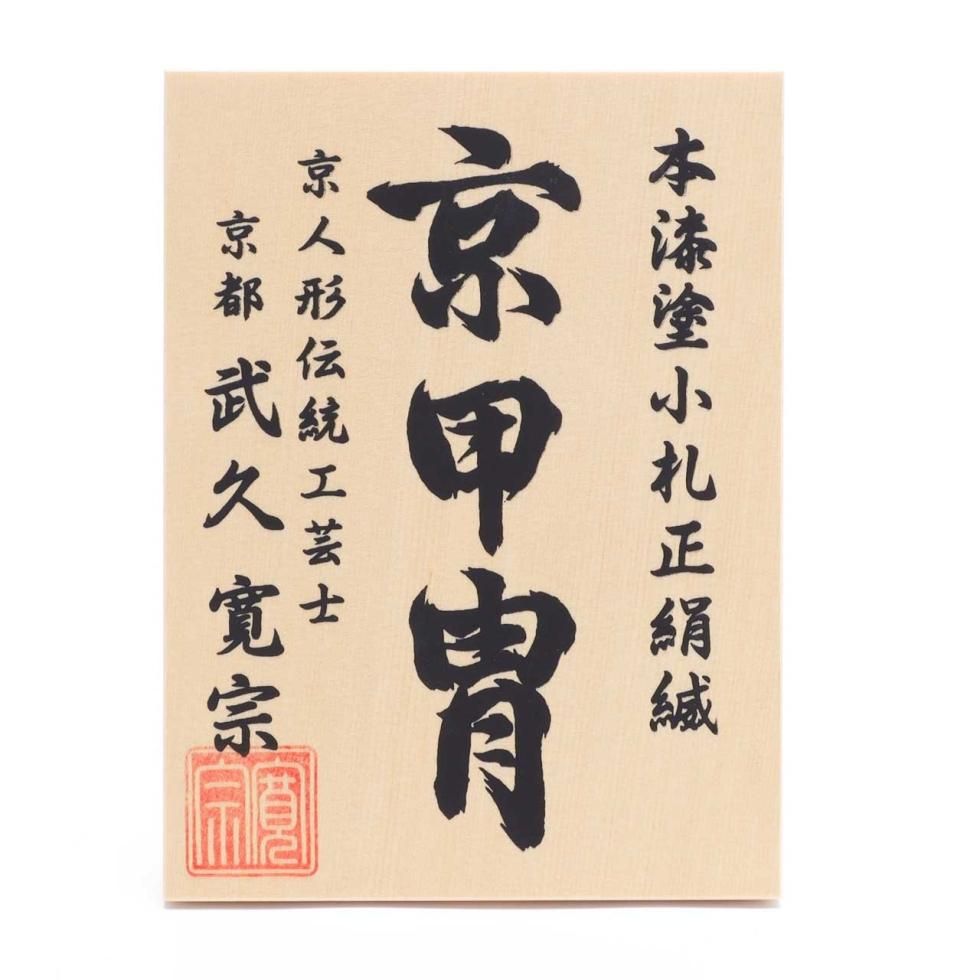 本漆塗小札正絹縅
京甲冑
京人形伝統工芸士
京都 武久寛宗
寛宗